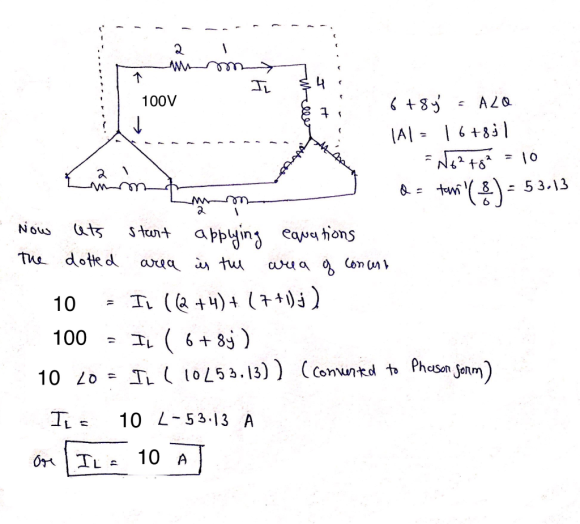 2 1
I_L
4
7
100V
2 1
2 1
6 + 8j = A∠Q
|A| = |6+8j|
= √6²+8² = 10
Q = tan⁻¹(8/6) = 53.13
Now lets start applying equations
The dotted area is the area of
10 = I_L ((2+4) + (7+1)j)
100 = I_L (6+8j)
10 ∠0 = I_L (10∠53.13)) (Converted to Phasor form)
I_L = 10 ∠-53.13 A
or I_L = 10 A